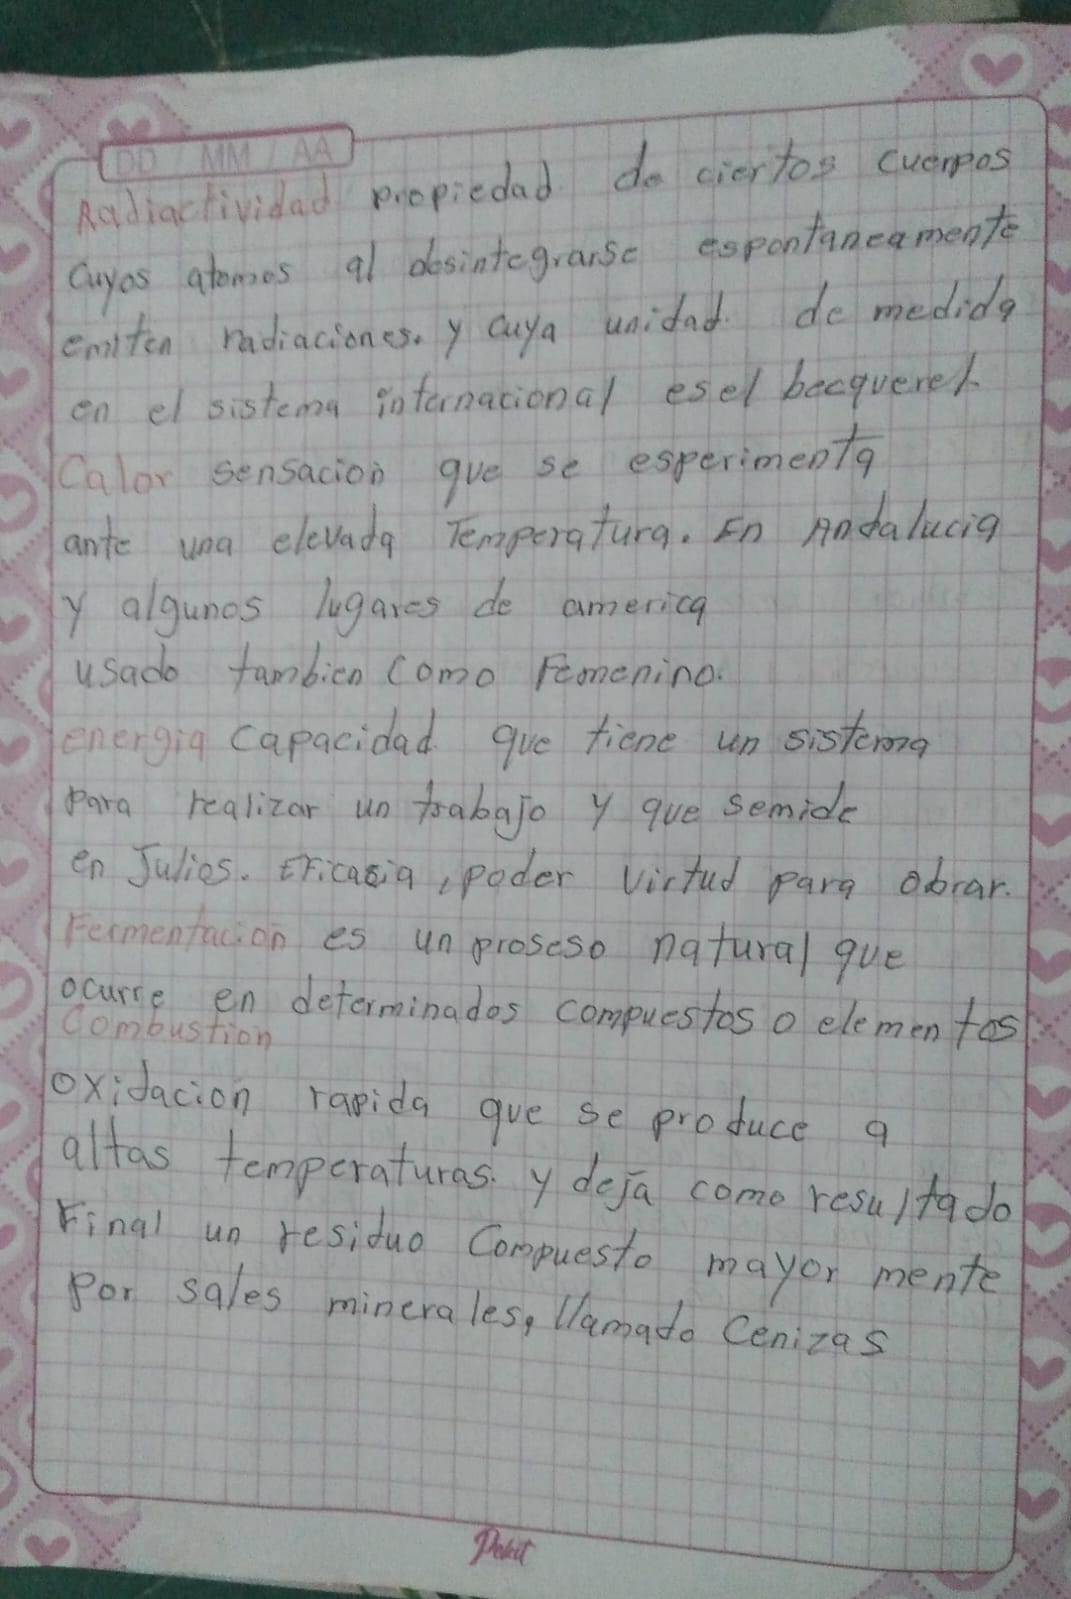 DD / MM / AA
Radiactividad propiedad de ciertos cuerpos
cuyos atomos al desintegrarse espontaneamente
emiten radiaciones. y cuya unidad de medida
en el sistema internacional es el becquerel.
Calor sensacion que se esperimenta
ante una elevada Temperatura. En Andalucia
y algunos lugares de america
usado tambien como Femenino.
energia capacidad que tiene un sistema
para realizar un trabajo y que semide
en Julios. Eficasia, poder virtud para obrar.
Fermentacion es un proseso natural que
ocurre en determinados compuestos o elementos
Combustion
oxidacion rapida que se produce a
altas temperaturas. y deja como resultado
Final un residuo Compuesto mayor mente
por sales minerales, llamado Cenizas